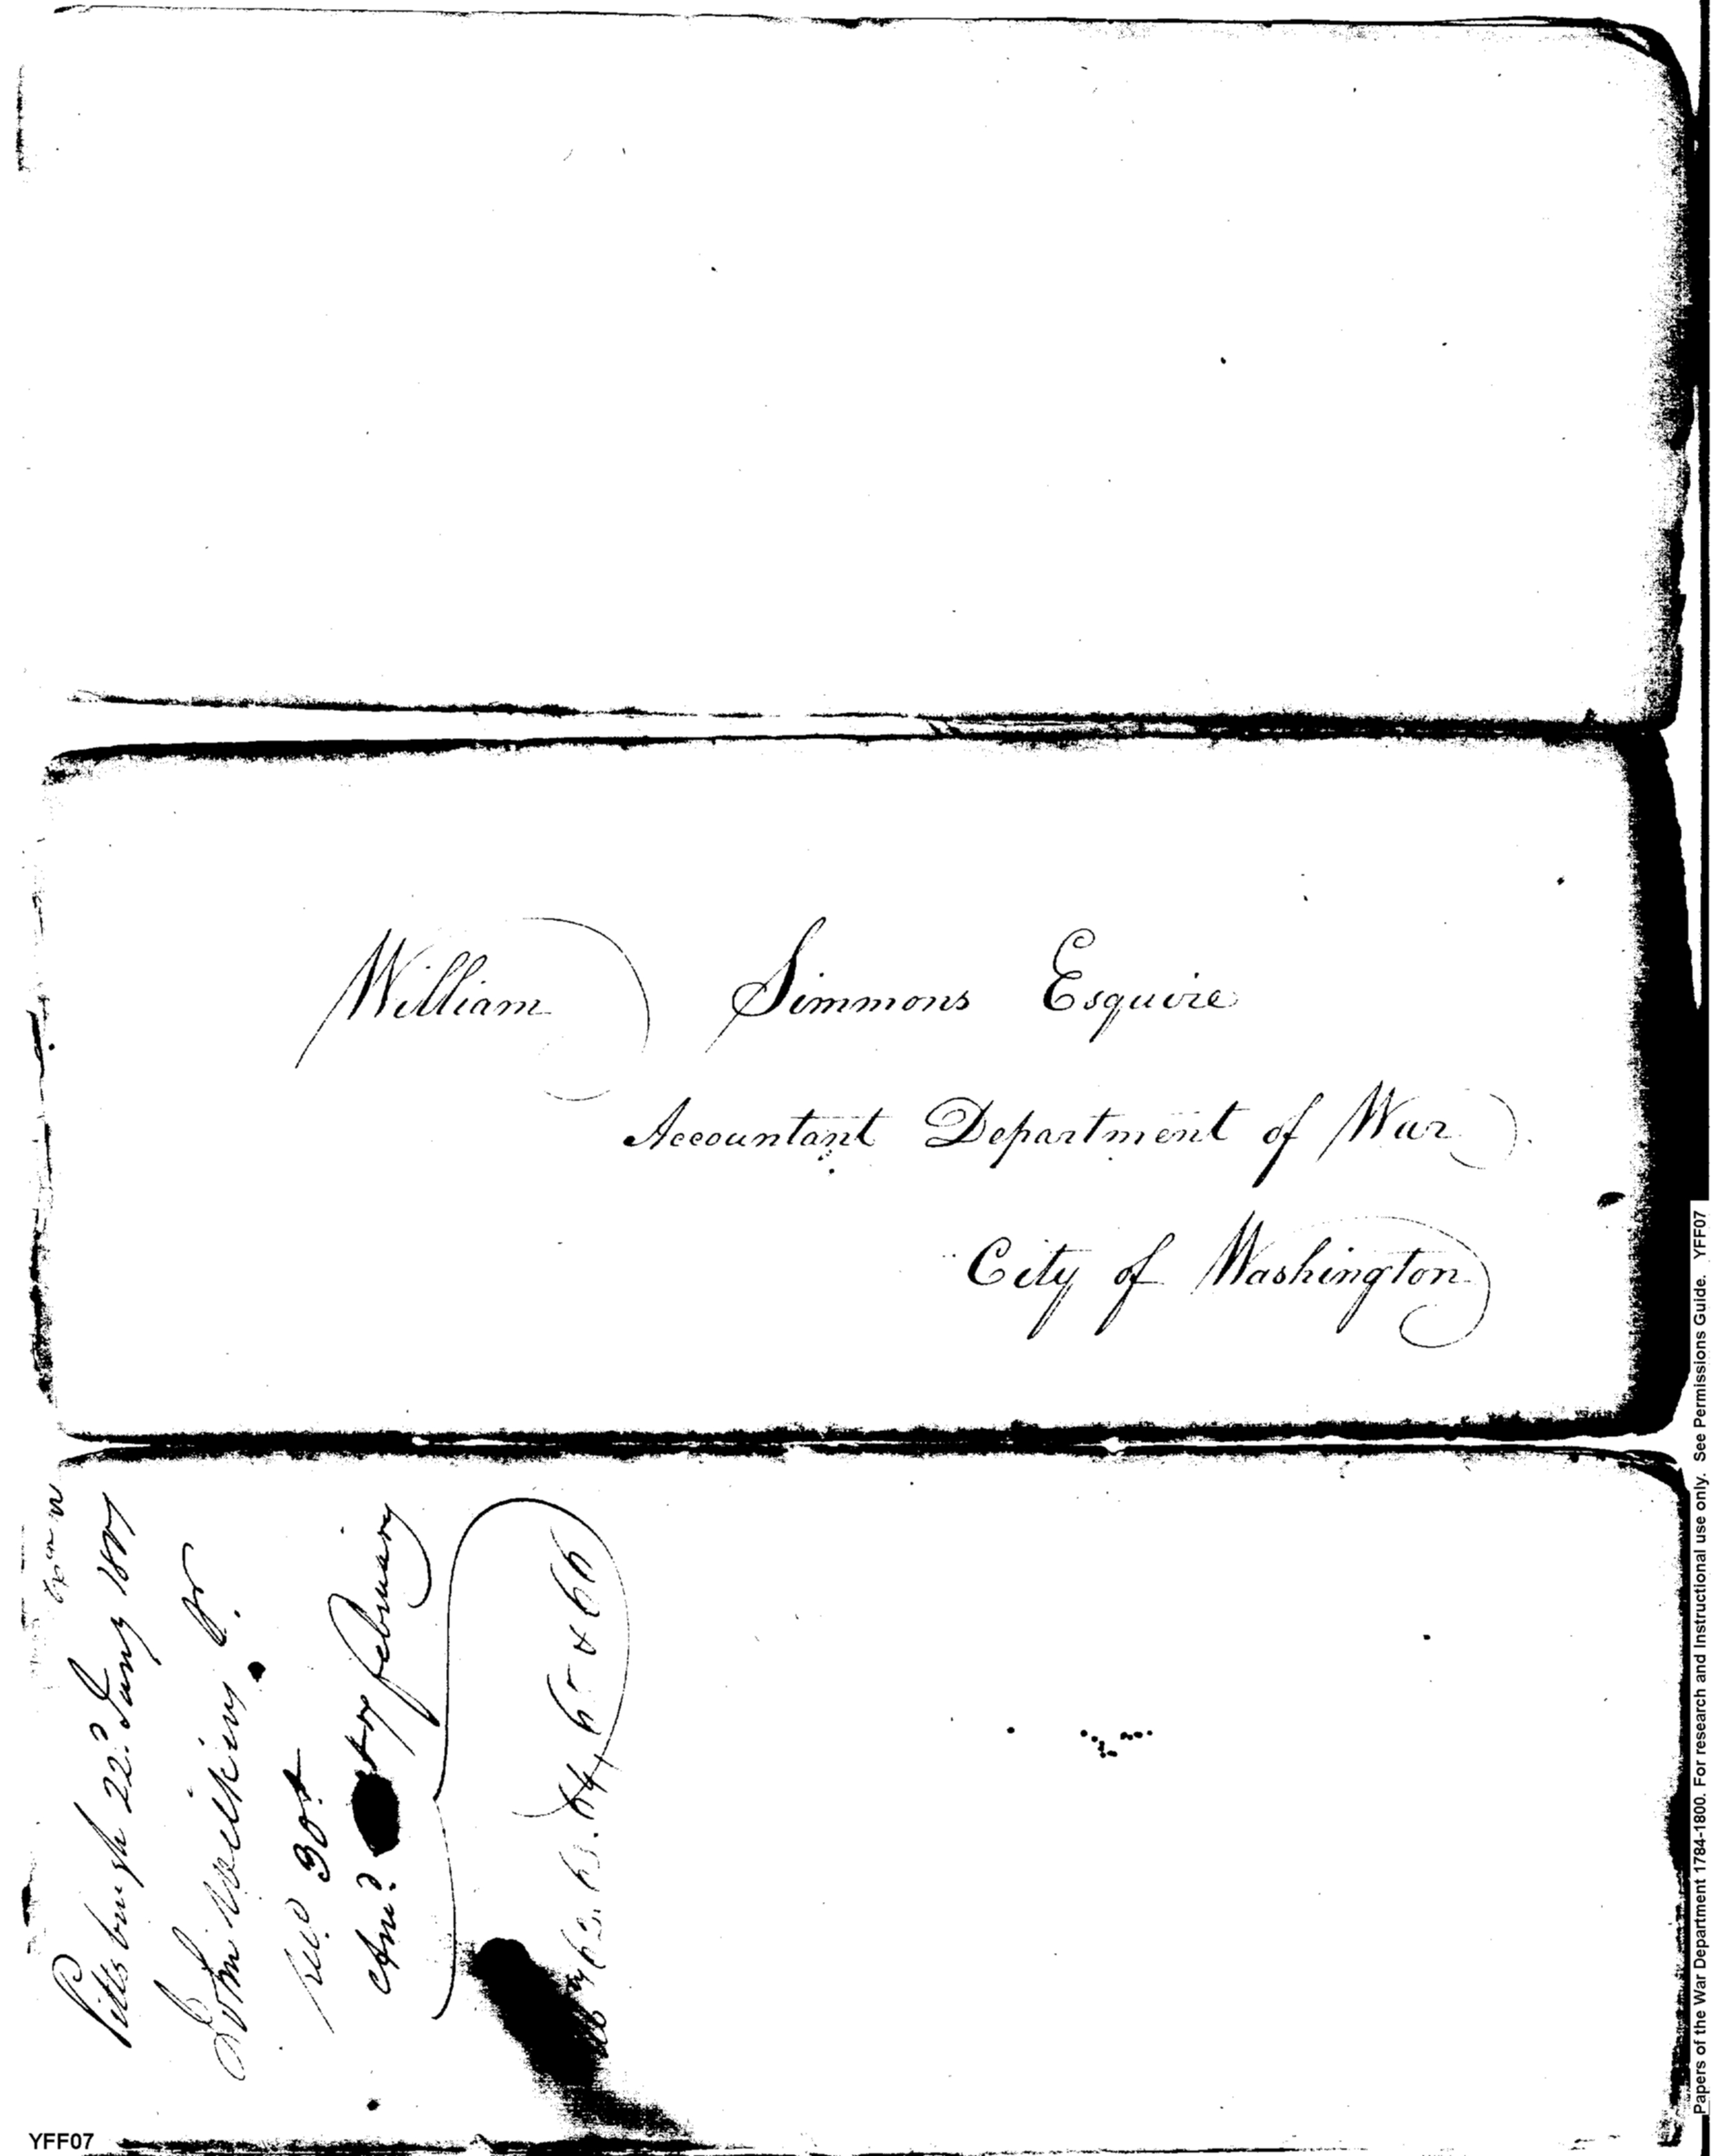 William Simmons Esquire
Accountant Department of War
City of Washington
Pittsburgh 22d. Jany 1801
John Wilkins Jr.
Rec'd 30t.
Ans'd February
62. 63. 64, 65 & 66
YFF07
Papers of the War Department 1784-1800. For research and Instructional use only. See Permissions Guide. YFF07